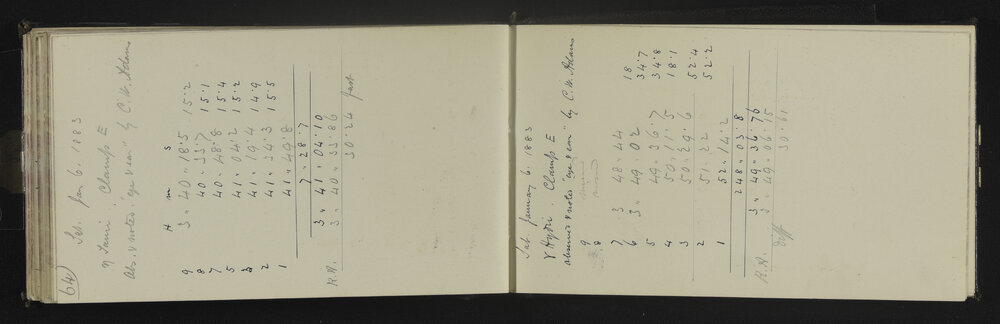 64
Sat. Jan 6. 1883
η Tauri Clamp E
Obs. & noted "eye & ear" by C. W. Adams
H m s
9 3 " 40 " 18.5 15.2
8 40 " 33.7 15.1
7 40 " 48.8 15.4
5 41 " 04.2 15.2
3 41 " 19.4 14.9
2 41 " 34.3 15.5
1 41 " 49.8
7 " 28.7
3 " 41 " 04.10
R.A. 3 " 40 " 33.86
30.24 fast
Sat. January 6. 1883
γ Hydri. Clamp E
observed & noted "eye & ear" by C. W. Adams
9 missed
8 missed
7 3 48 " 44 18
6 3 " 49 " 02 34.7
5 49 " 36.7 34.8
4 50 " 11.5 18.1
3 50 " 29.6 52.4
2 51 " 22 52.2
1 52 " 14.2
248 " 03.8
3 " 49 " 36.76
R.A. 3 " 49 " 06.15
diff 30.61